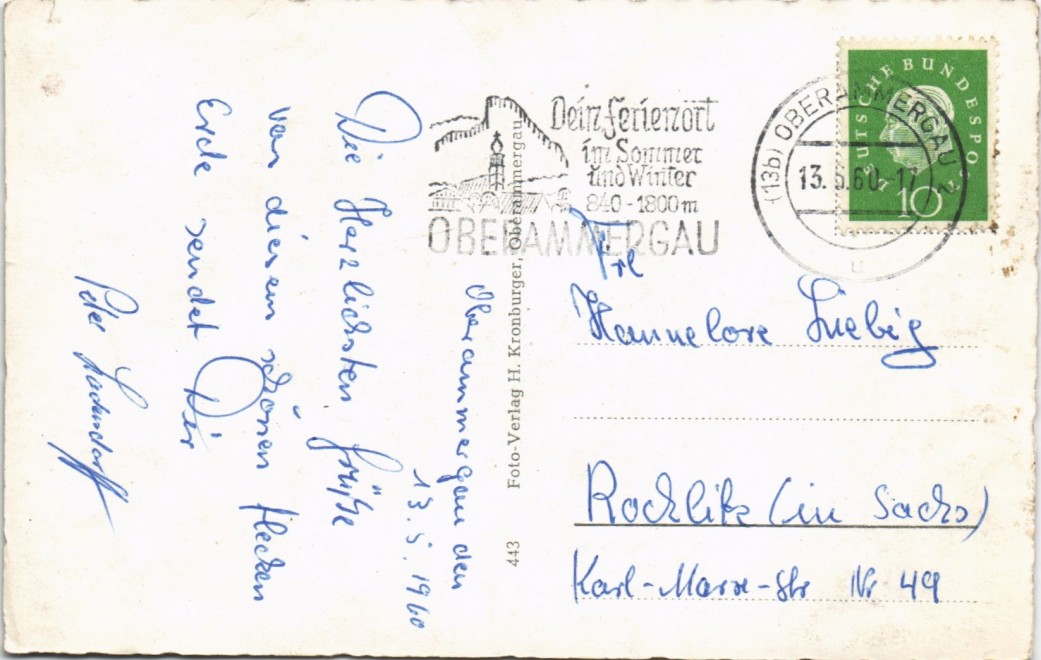 Oberammergau den
13.5.1960
Die Herzlichsten Grüße
von diesem schönen flecken
Erde sendet Dir
Peter
443 Foto-Verlag H. Kronburger, Oberammergau
Dein Ferienort
im Sommer
und Winter
840-1800m
OBERAMMERGAU
(13b) OBERAMMERGAU 2
13.5.60.-17
u
DEUTSCHE BUNDESPOST
10
Frl
Hannelore Liebig
Rochlitz (in Sachs)
Karl-Marx-Str Nr 49